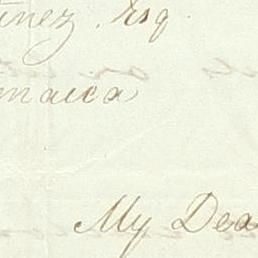 tinez. Esq.
maica
My Dea